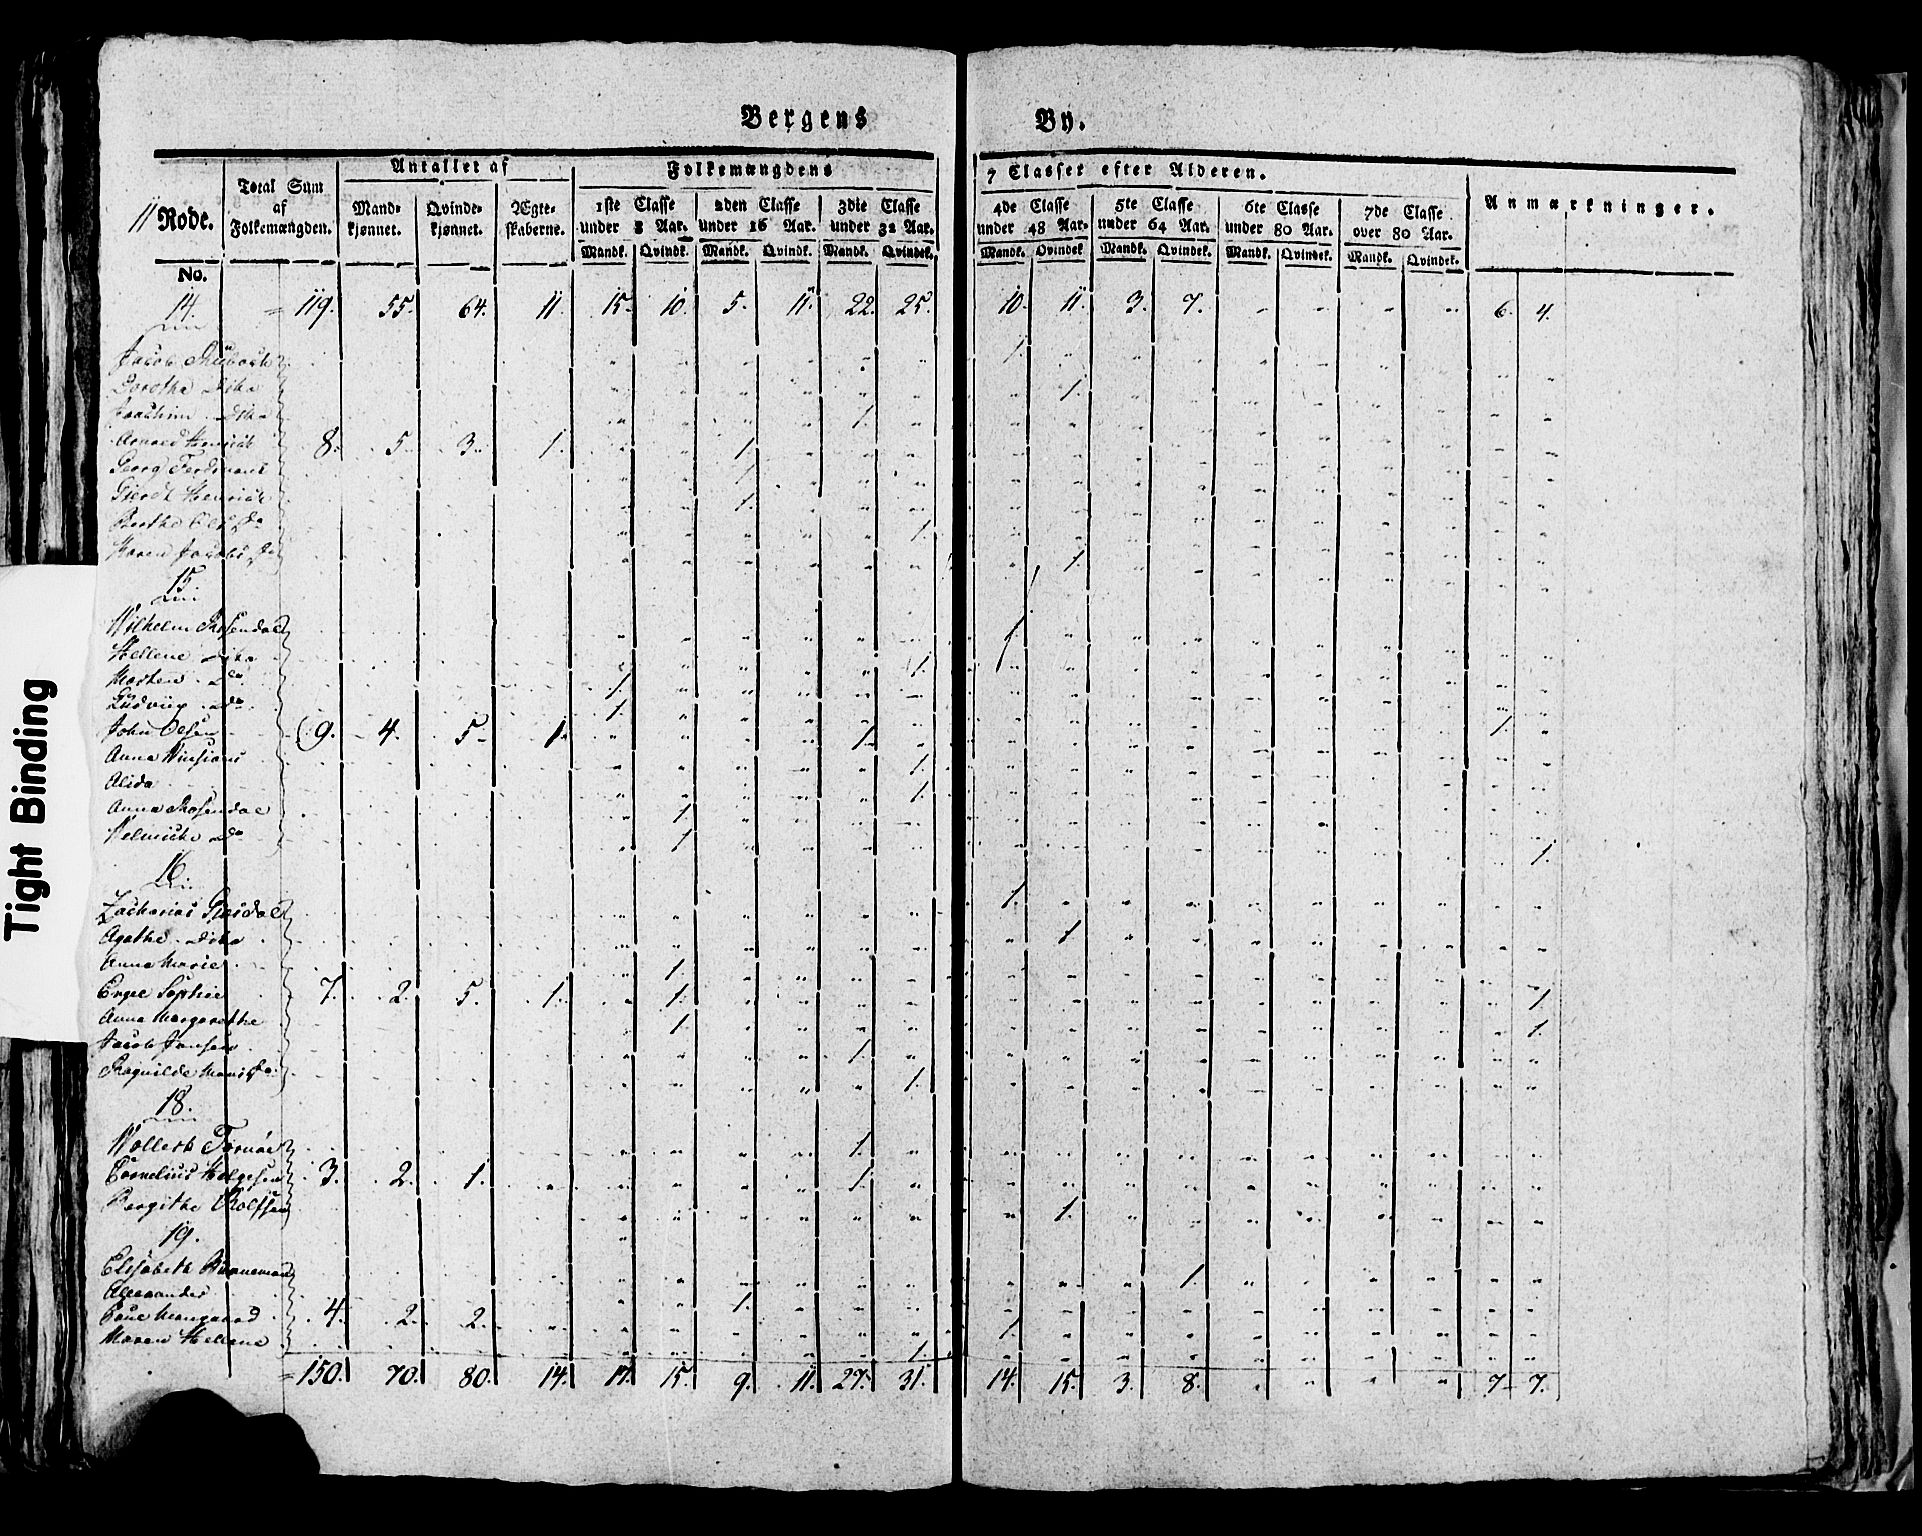 Bergens By.
11 Rode.
Total Sum af Folkemængden.
Antallet af
Mandkjønnet. Qvindekjønnet. Ægteskaberne.
Folkemængdens 7 Classer efter Alderen.
1ste Classe under 8 Aar. 2den Classe under 16 Aar. 3die Classe under 32 Aar. 4de Classe under 48 Aar. 5te Classe under 64 Aar. 6te Classe under 80 Aar. 7de Classe over 80 Aar.
Anmærkninger.
Mandk. Qvindk. Mandk. Qvindk. Mandk. Qvindek. Mandk. Qvindek Mandk. Qvindek. Mandk. Qvindek. Mandk. Qvindek.
No.
14. = 119. 55. 64. 11. 15. 10. 5. 11. 22. 25. 10. 11. 3. 7. " " " " 6. 4.
Jacob 1.
Dorothe Dito 1.
Joachim Dito 1.
Arnold Henrich 8. 5. 3. 1. 1.
Georg Ferdinant 1.
Gierdt Henrich 1.
Berthe Ols Da 1.
Karen Jacobs Da 1.
15.
Wilhelm Rosendal 1
Hellene Dito 1.
Morten Do 1.
Ludvig Do 1.
John Olsen 9. 4. 5. 1. 1. 1.
Anna 1.
Alida 1.
Anna Rosendal 1
Do 1 1.
16.
Zacharias 1.
Agathe Dito 1
Anna Marie 1.
Engel Sophie 7. 2. 5. 1. 1. 1.
Anna Margarethe 1. 1.
Jacob Jansen 1.
Ragnilde Da 1.
18.
Wollert 1.
Cornelius Helgesen 3. 2. 1. 1.
Bergithe Rolfsen 1.
19.
Elisabeth 1.
Alexander 1.
4. 2. 2. 1.
Maren Hellene 1.
= 150. 70. 80. 14. 17. 15. 9. 11. 27. 31. 14. 15. 3. 8. " " " " 7. 7.
Tight Binding